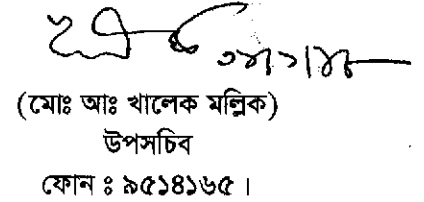 (মোঃ আঃ খালেক মল্লিক)
উপসচিব
ফোন ঃ ৯৫১৪১৬৫।